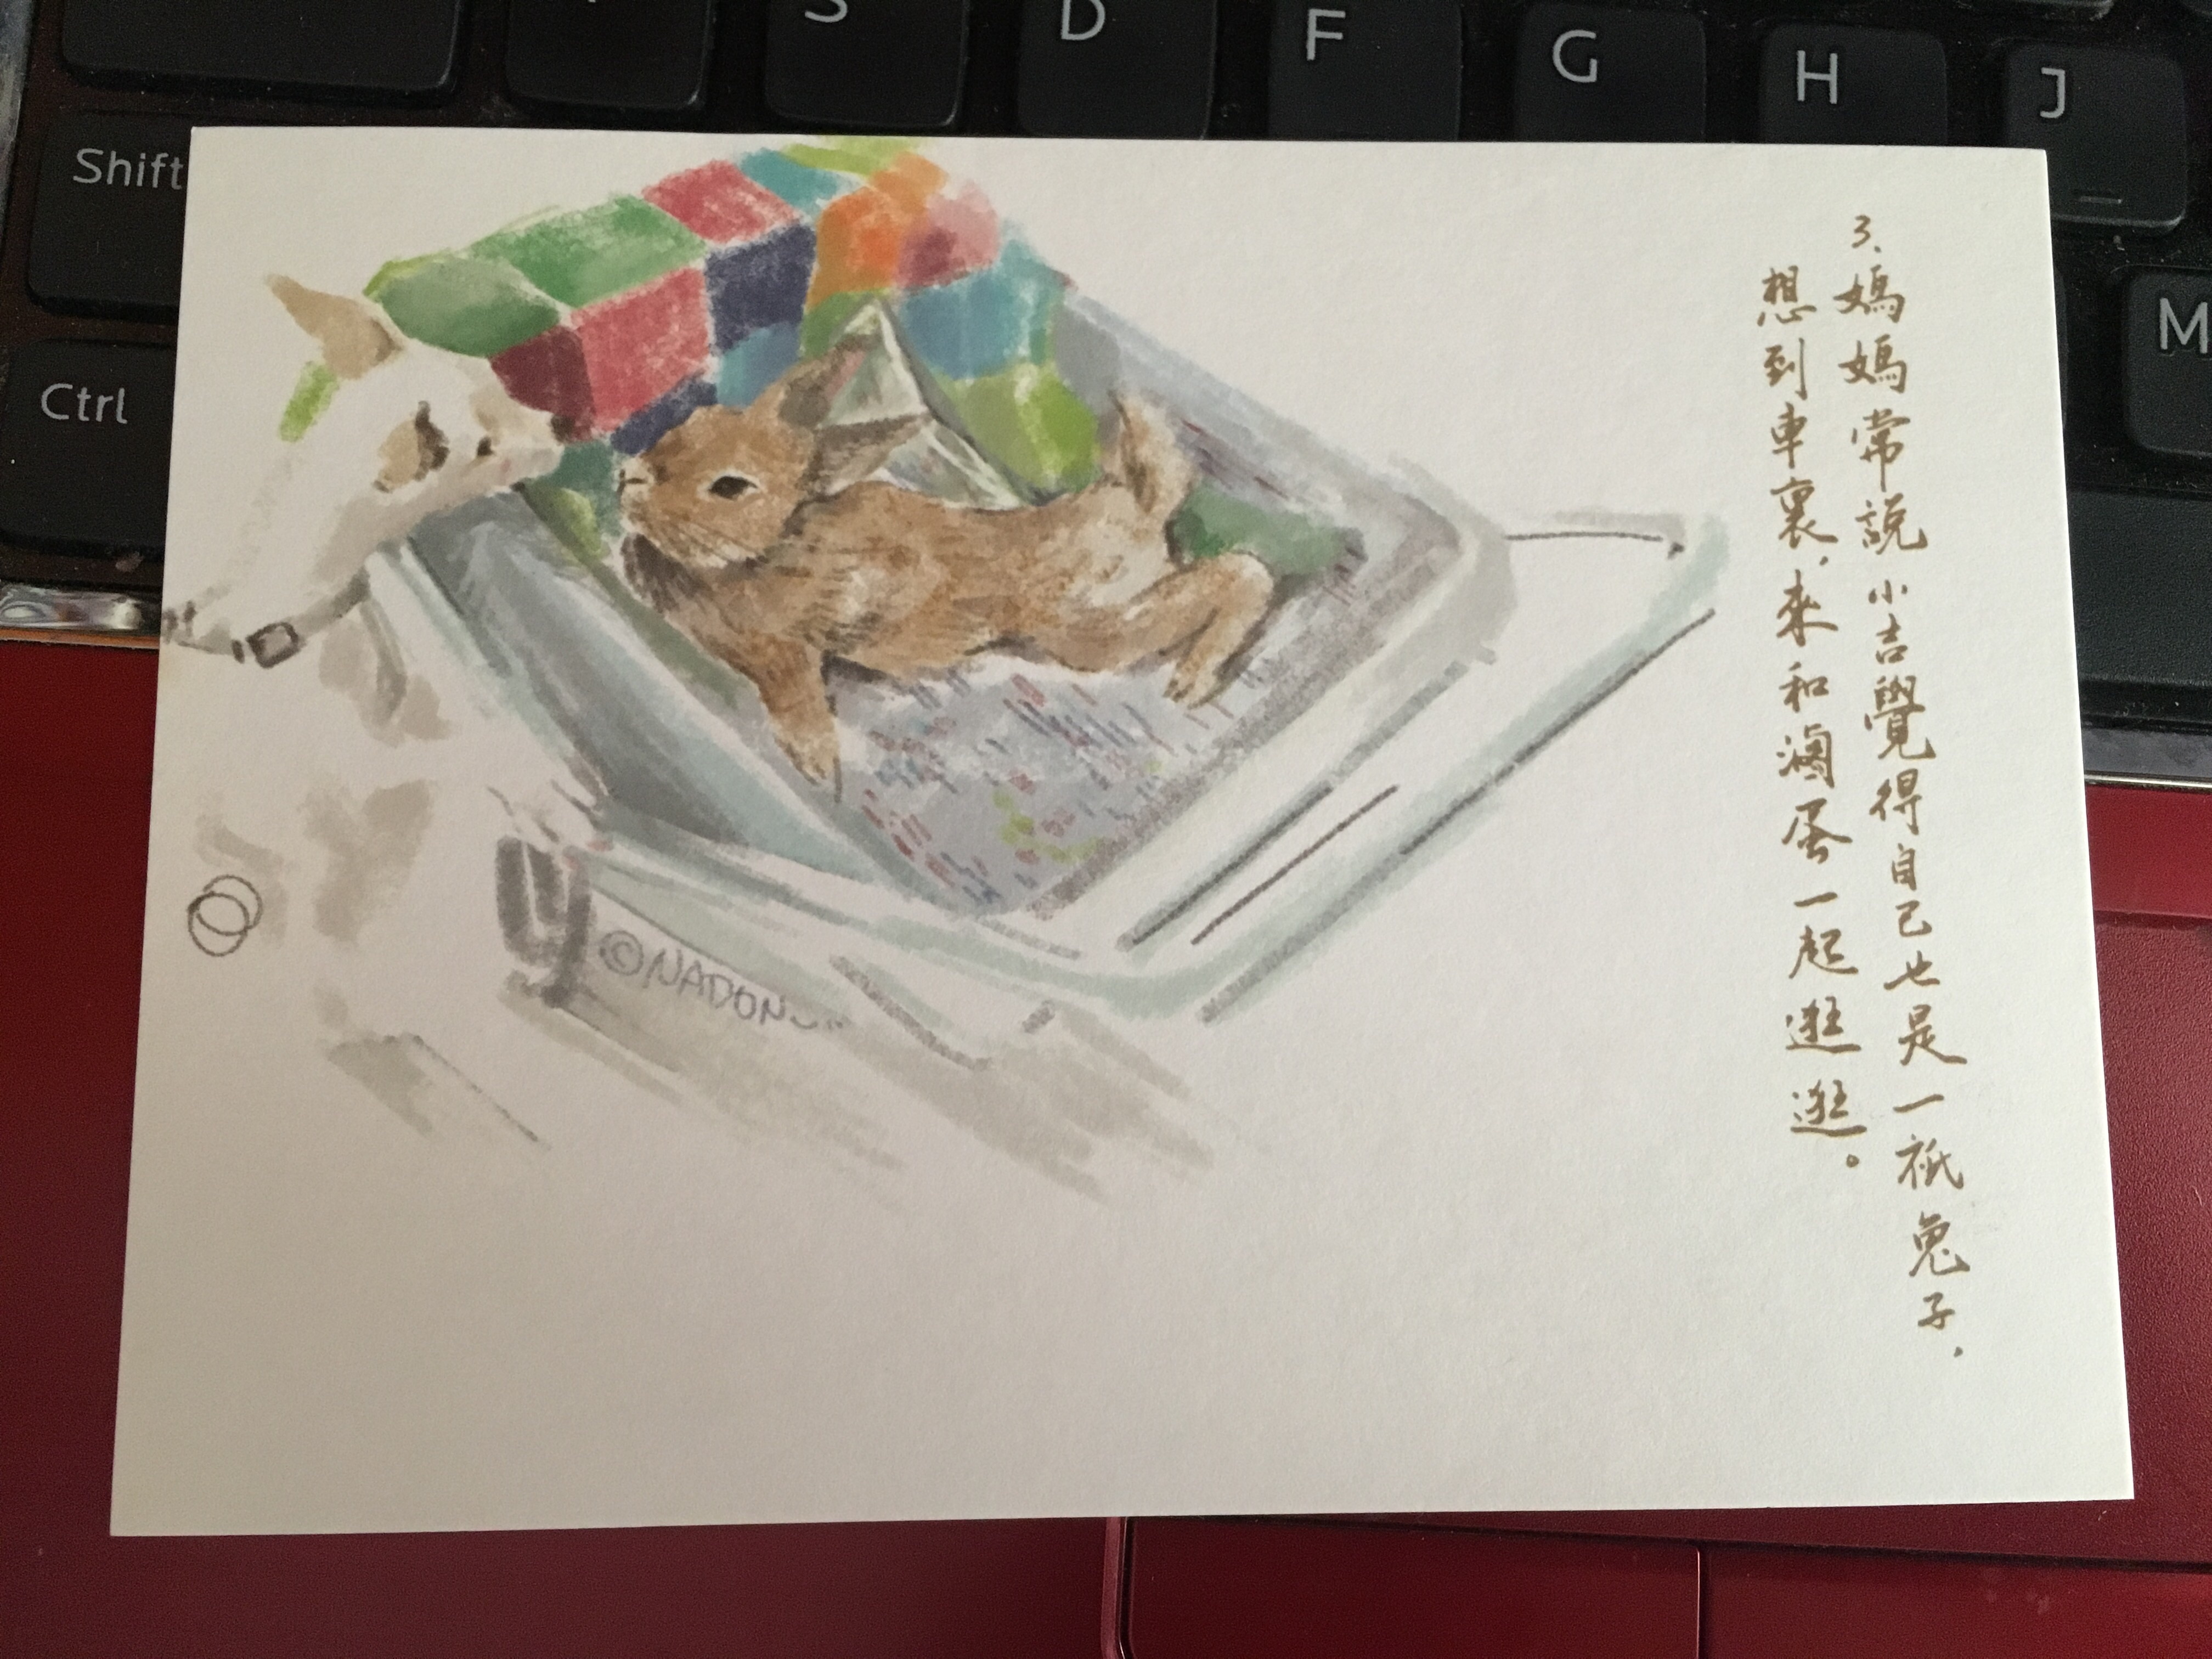 S
D
F
G
H
J
Shift
Ctrl
M
3.
媽媽常說小吉覺得自己也是一祇兔子,
想到車裏,來和滷蛋一起逛逛。
©NADON